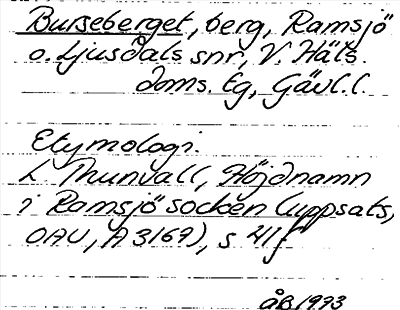 Burseberget, berg, Ramsjö
o. Ljusdals snr, V. Häls.
doms. tg, Gävl. l.
Etymologi.
L Thunvall, Höjdnamn
i Ramsjö socken (uppsats,
OAU, A 3169), s 41 f
ÅB 1993